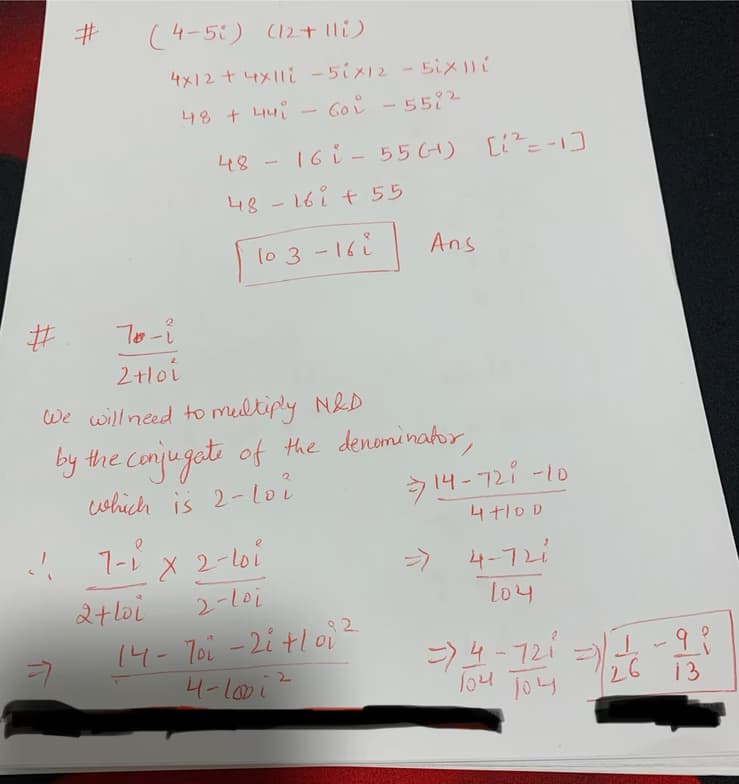 # (4-5i) (12+11i)
4×12 + 4×11i - 5i×12 - 5i×11i
48 + 44i - 60i - 55i²
48 - 16i - 55(-1) [i²=-1]
48 - 16i + 55
103 - 16i Ans
# 7-i
2+10i
We will need to multiply N&D
by the conjugate of the denominator,
which is 2-10i
∴ 7-i × 2-10i
2+10i 2-10i
⇒ 14 - 70i - 2i + 10i²
4-100i²
⇒ 14-72i-10
4+100
⇒ 4-72i
104
⇒ 4 - 72i ⇒ 1 - 9i
104 104 26 13